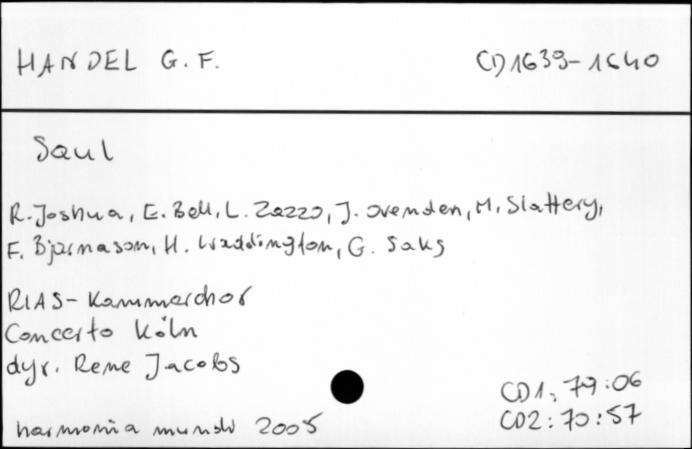 HANDEL G.F. CD1639-1640
Saul
R. Joshua, E. Bell, L. Zazzo, J. Ovenden, M. Slattery,
F. Bjarnason, H. Waddington, G. Saks
RIAS-Kammerchor
Concerto Köln
dyr. Rene Jacobs
CD1: 79:06
CD2: 70:57
harmonia mundi 2005